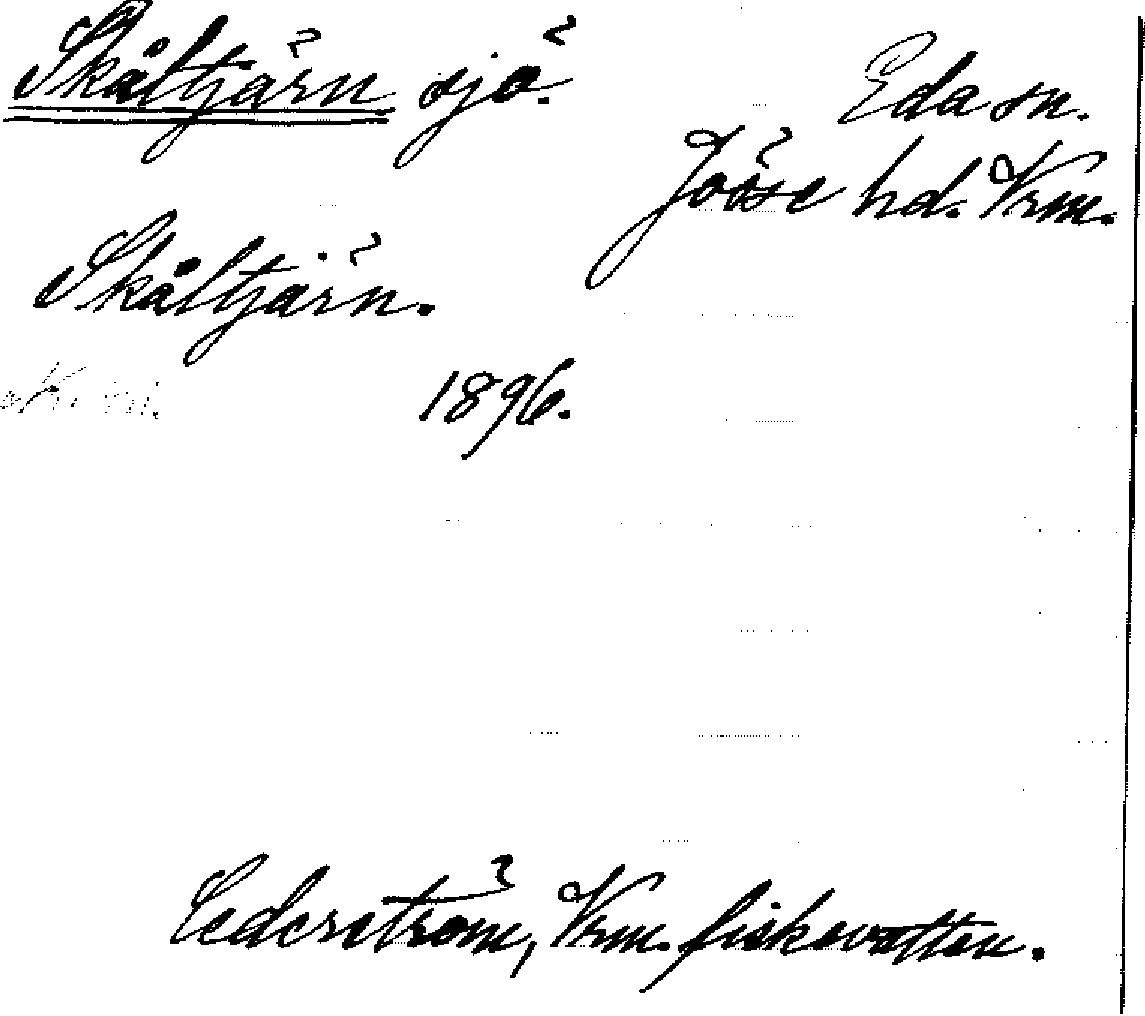 Skåltjärn sjö. Eda sn.
Jösse hd. Vrm.
Skåltjärn.
1896.
Cederström, Vrm. fiskevatten.